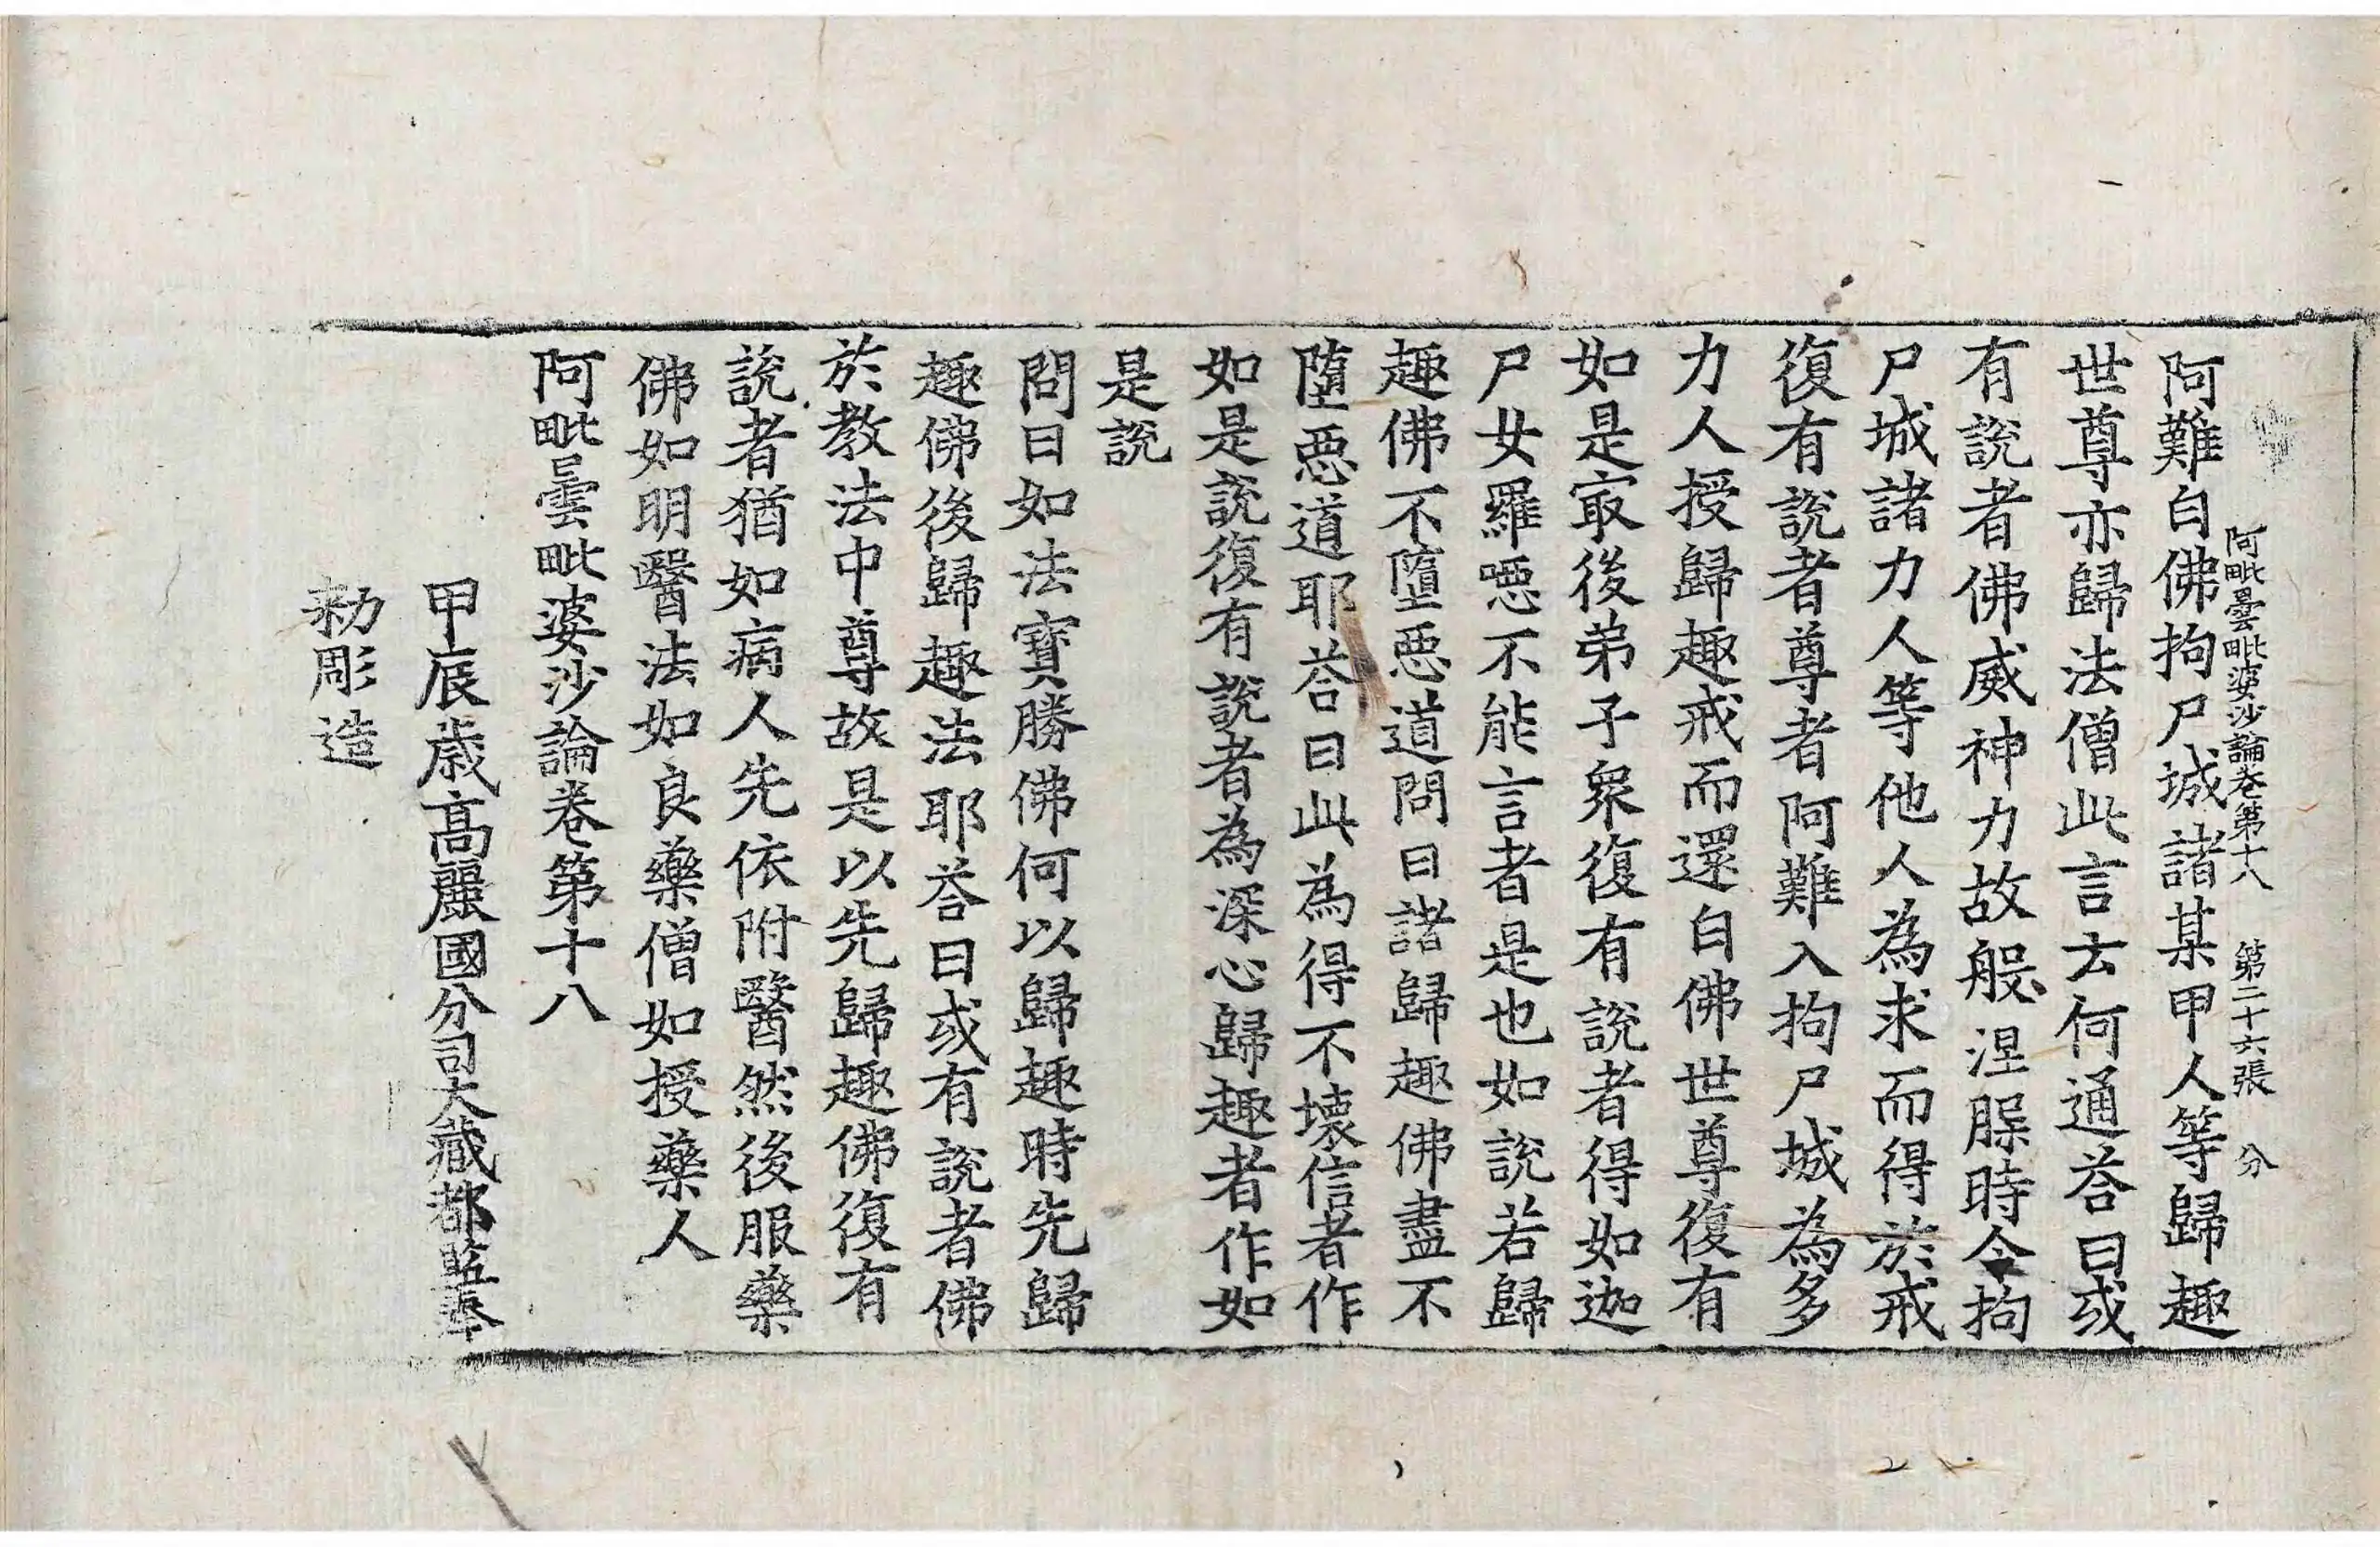 阿毗曇毗婆沙論卷第十八 第二十六張 分
阿難白佛拘尸城諸某甲人等歸趣
世尊亦歸法僧此言云何通荅曰或
有說者佛威神力故般涅膎時令拘
尸城諸力人等他人為求而得於戒
復有說者尊者阿難入拘尸城為多
力人授歸趣戒而還白佛世尊復有
如是㝡後弟子衆復有說者得如迦
尸女羅噁不能言者是也如說若歸
趣佛不墮惡道問曰諸歸趣佛盡不
墮惡道耶荅曰此為得不壞信者作
如是說復有說者為深心歸趣者作如
是說
問曰如法寶勝佛何以歸趣時先歸
趣佛後歸趣法耶荅曰或有說者佛
於教法中尊故是以先歸趣佛復有
說者猶如病人先依附醫然後服藥
佛如明醫法如良藥僧如授藥人
阿毗曇毗婆沙論卷第十八
甲辰歲高麗國分司大藏都監奉
勑彫造